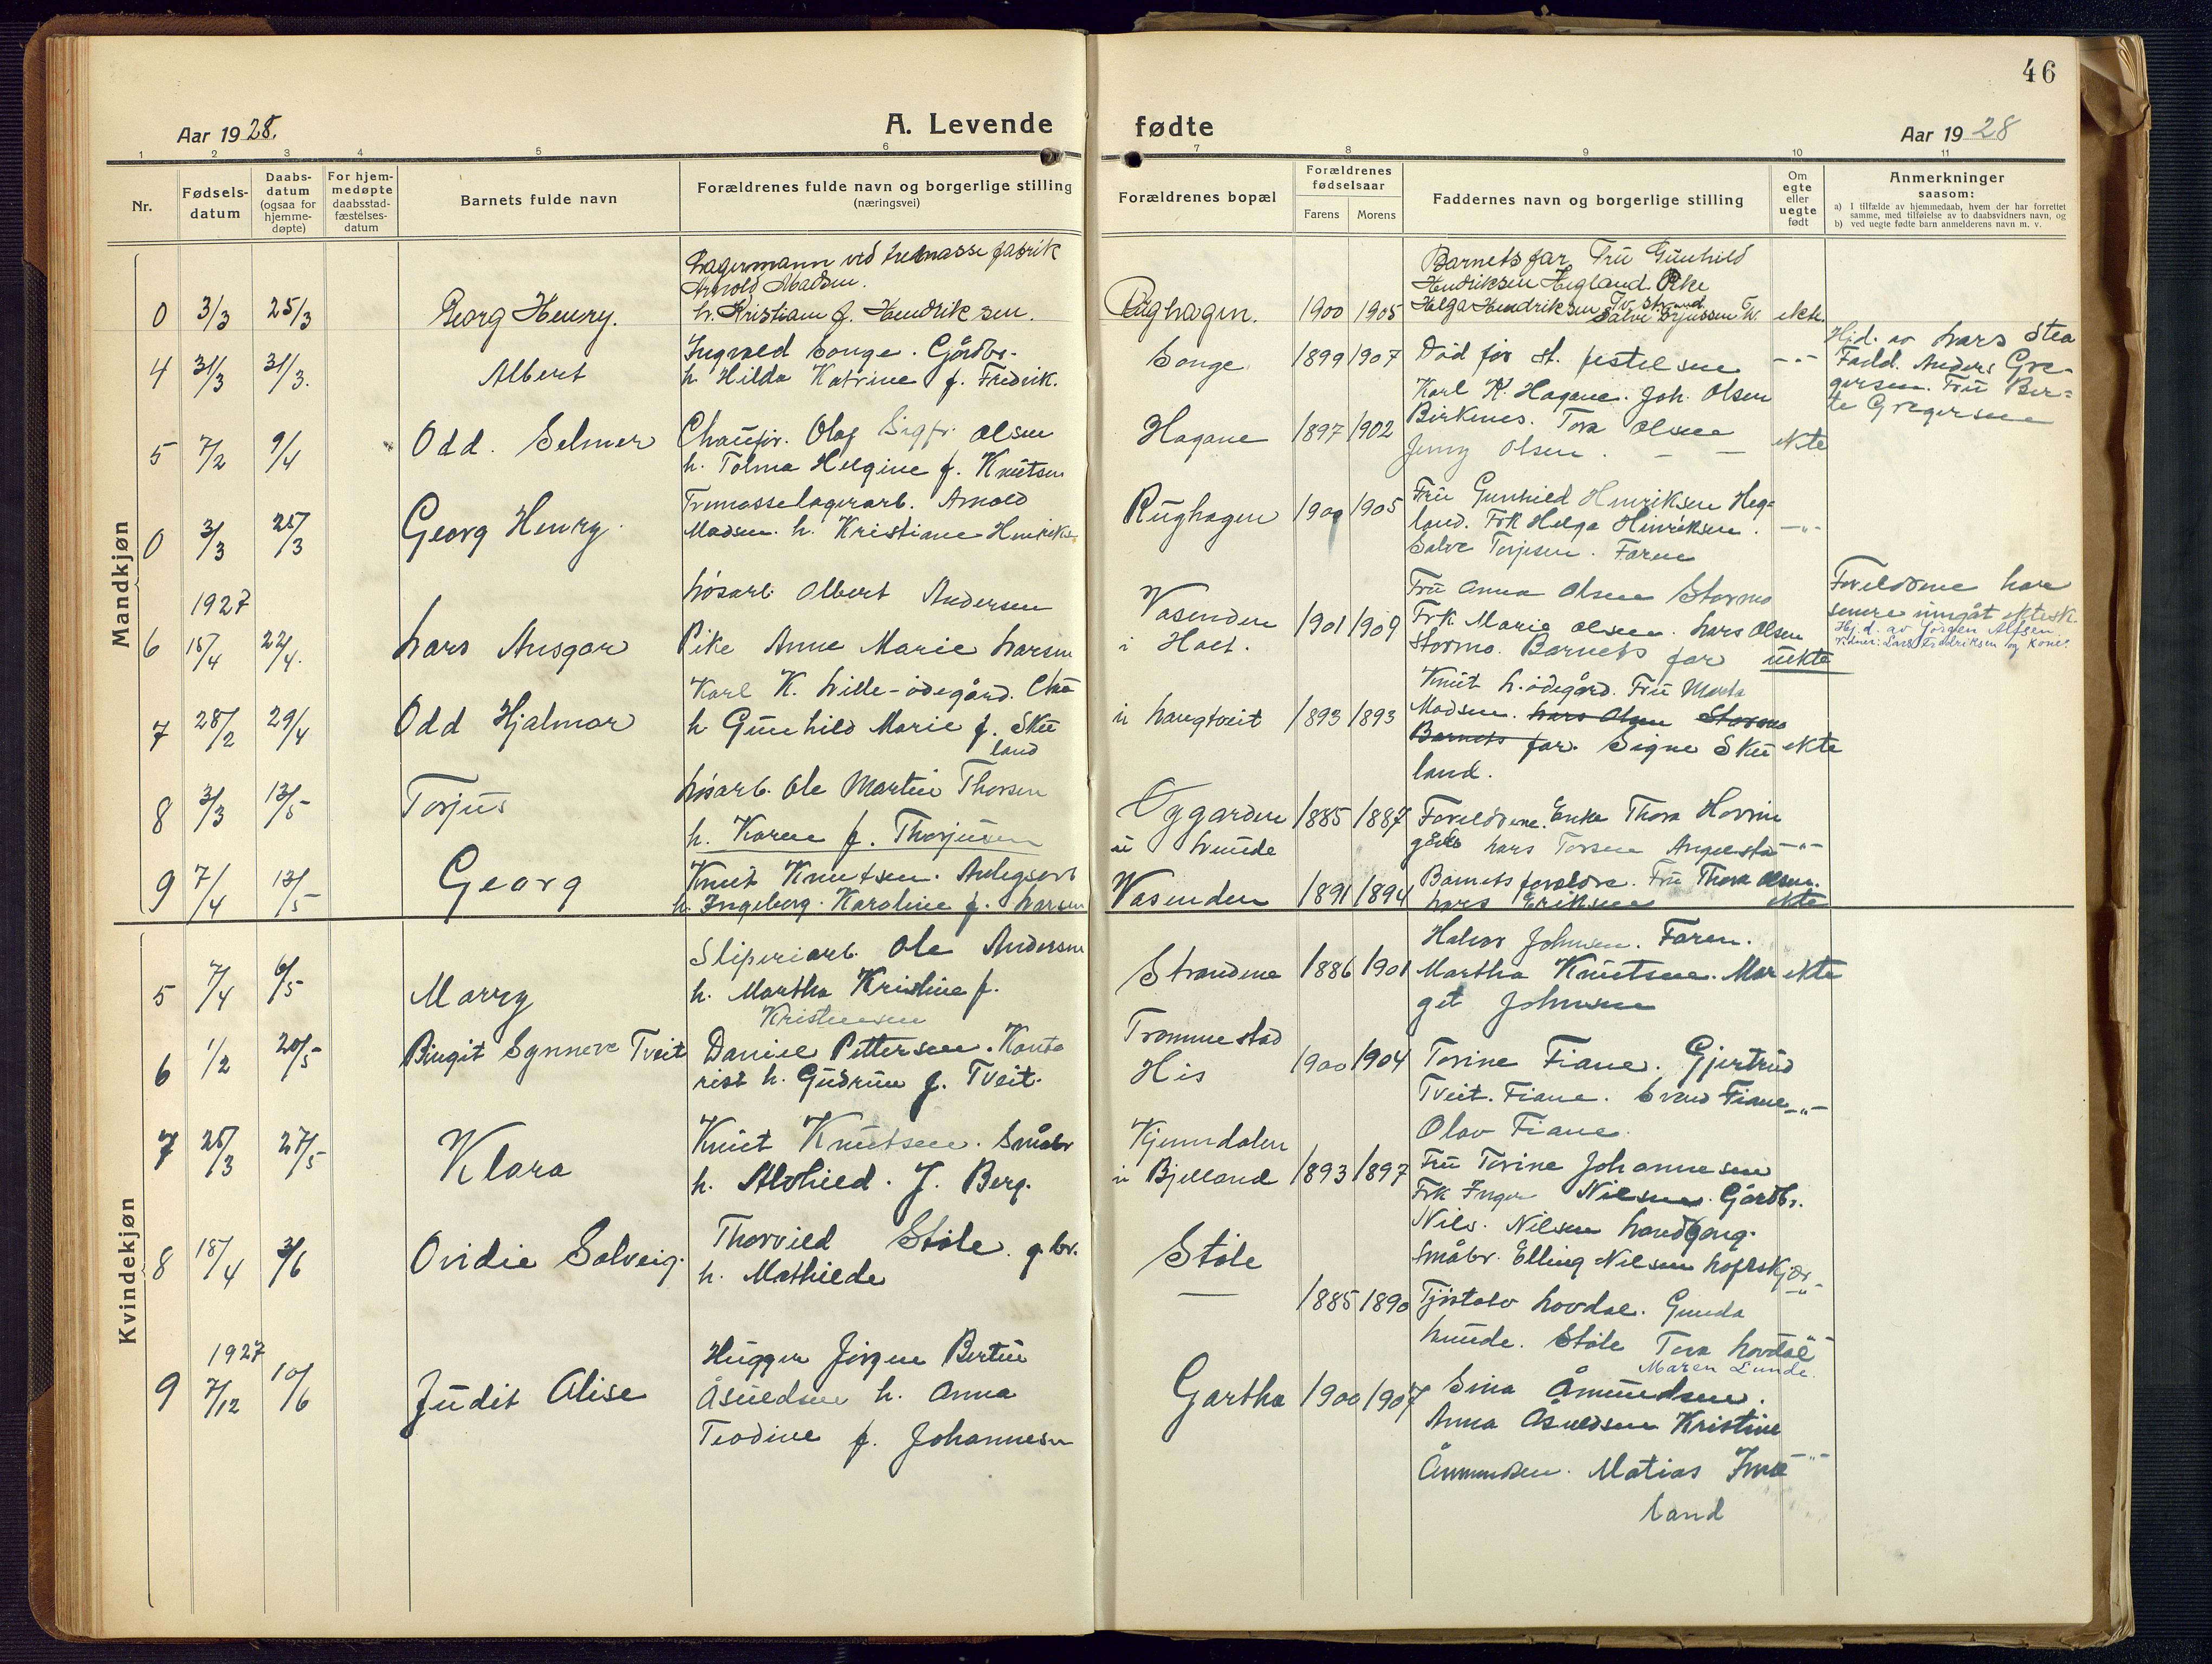 46
Aar 1928.
A. Levende
fødte
Aar 1928
1 2 3 4 5 6 7 8 9 10 11
Nr.
Fødsels-
datum
Daabs-
datum
(ogsaa for
hjemme-
døpte)
For hjem-
medøpte
daabsstad-
fæstelses-
datum
Barnets fulde navn
Forældrenes fulde navn og borgerlige stilling
(næringsvei)
Forældrenes bopæl
Forældrenes
fødselsaar
Farens Morens
Faddernes navn og borgerlige stilling
Om
egte
eller
uegte
født
Anmerkninger
saasom:
a) I tilfælde av hjemmedaab, hvem der har forrettet
samme, med tilføielse av to daabsvidners navn, og
b) ved uegte fødte barn anmelderens navn m. v.
Mandkjøn
0 3/3 25/3 Georg Henry.
Lagermann ved tremasse fabrik
Arnold Madsen.
h. Kristiane f. Hendriksen.
Rughagen. 1900 1905
Barnets far Fru Gunhild
Hendriksen Hegland Pike
Helga Hendriksen
ekte
4 31/3 31/3. Albert
Ingvald Songe. Gårdbr.
h Hilda Katrine f. Fredrik.
Songe 1899 1907
Død før st. festelsen
-"-
Hjd. av Lars Stea
Fadd. Anders Gre-
gersen. Fru Ber-
te Gregersen
5 7/2 9/4 Odd. Selmer
Chaufør. Olaf Sigfr. Olsen
h. Tolma Helgine f. Knutsen
Hagane 1897 1902
Karl K. Hagane. Joh. Olsen
Birkenes. Tora Olsen
Jenny Olsen. — —
ekte
0 3/3 25/3 Georg Henry.
Tremasselagerarb. Arnold
Madsen. h. Kristiane Henriks.
Rughagen 1900 1905
Fru Gunhild Henriksen Heg-
land. Frk Helga Hinriksen.
Salve Torjesen. Faren
-"-
1927
6 15/4 22/4. Lars Ansgar
Løsarb. Albert Andersen
Pike Anne Marie Larsen
Vasenden
i Holt. 1901 1909
Fru Anna Olsen Stormo
Frk. Marie Olsen. Lars Olsen
Stormo. Barnets far
uekte
Foreldrene har
senere inngåt ektesk.
Hj.d. av Jørgen Alfsen,
vidner: Lars Fredriksen og kone.
7 28/2 29/4 Odd Hjalmar
Karl K. Lille-ødegård.
h Gunhild Marie f. Sku
land
i Langtveit 1893 1893
Knut L. ødegård. Fru Marta
Madsen. Lars Olsen Stormo
Barnets far. Signe Sku
land.
ekte
8 3/3 13/5 Torjus
Løsarb. Ole Martin Thorsen
h. Karen f. Thorjusen
Øygarden
i Lunde 1885 1887
Foreldrene. Enke Thora Hovin
Lars Torsen
-"-
9 7/4 13/5 Georg
Knut Knutsen. Anlegsarb
h. Ingeborg. Karoline f. Larsen
Vasenden 1891 1894
Barnets foreldre. Fru Thora Olsen.
Lars Eriksen
ekte
Kvindekjøn
5 7/4 6/5 Marry
Sliperiarb. Ole Andersen
h. Martha Kristine f.
Kristensen
Strandene 1886 1901
Halvor Johnsen. Faren.
Martha Knutsen. Mar
git Johnsen
ekte
6 1/2 20/5 Birgit Synnøve Tveit
Daniel Pettersen. Konto
rist h. Gudrun f. Tveit.
Trommestad
His 1900 1904
Torine Fiane. Gjertrud
Tveit. Fiane. Svend Fiane
Olav Fiane.
-"-
7 25/3 27/5 Klara
Knut Knutsen. Småbr
h. Alvhild. J. Berg.
Kjenndalen
i Bjelland 1893 1897
Fru Torine Johannesen
Frk Inger Nilsen. Gårdbr.
Nils. Nilsen
Småbr. Elling Nilsen
-"-
8 18/4 3/6 Ovidie Solveig.
Thorvild Støle. g.br.
h. Mathilde
Støle
1885 1890
Tjøstolv Lovdal. Gunda
Lunde. Støle Tora Lovdal
Maren Lunde.
1927
9 7/12 10/6 Judit Alise
Hugger Jørgen Bertin
Åsuldsen h. Anna
Teodine f. Johannesn
Gartha 1900 1907
Sina Åmundsen.
Anna Åsuldsen Kristine
Åmmundsen. Matias
land
-"-